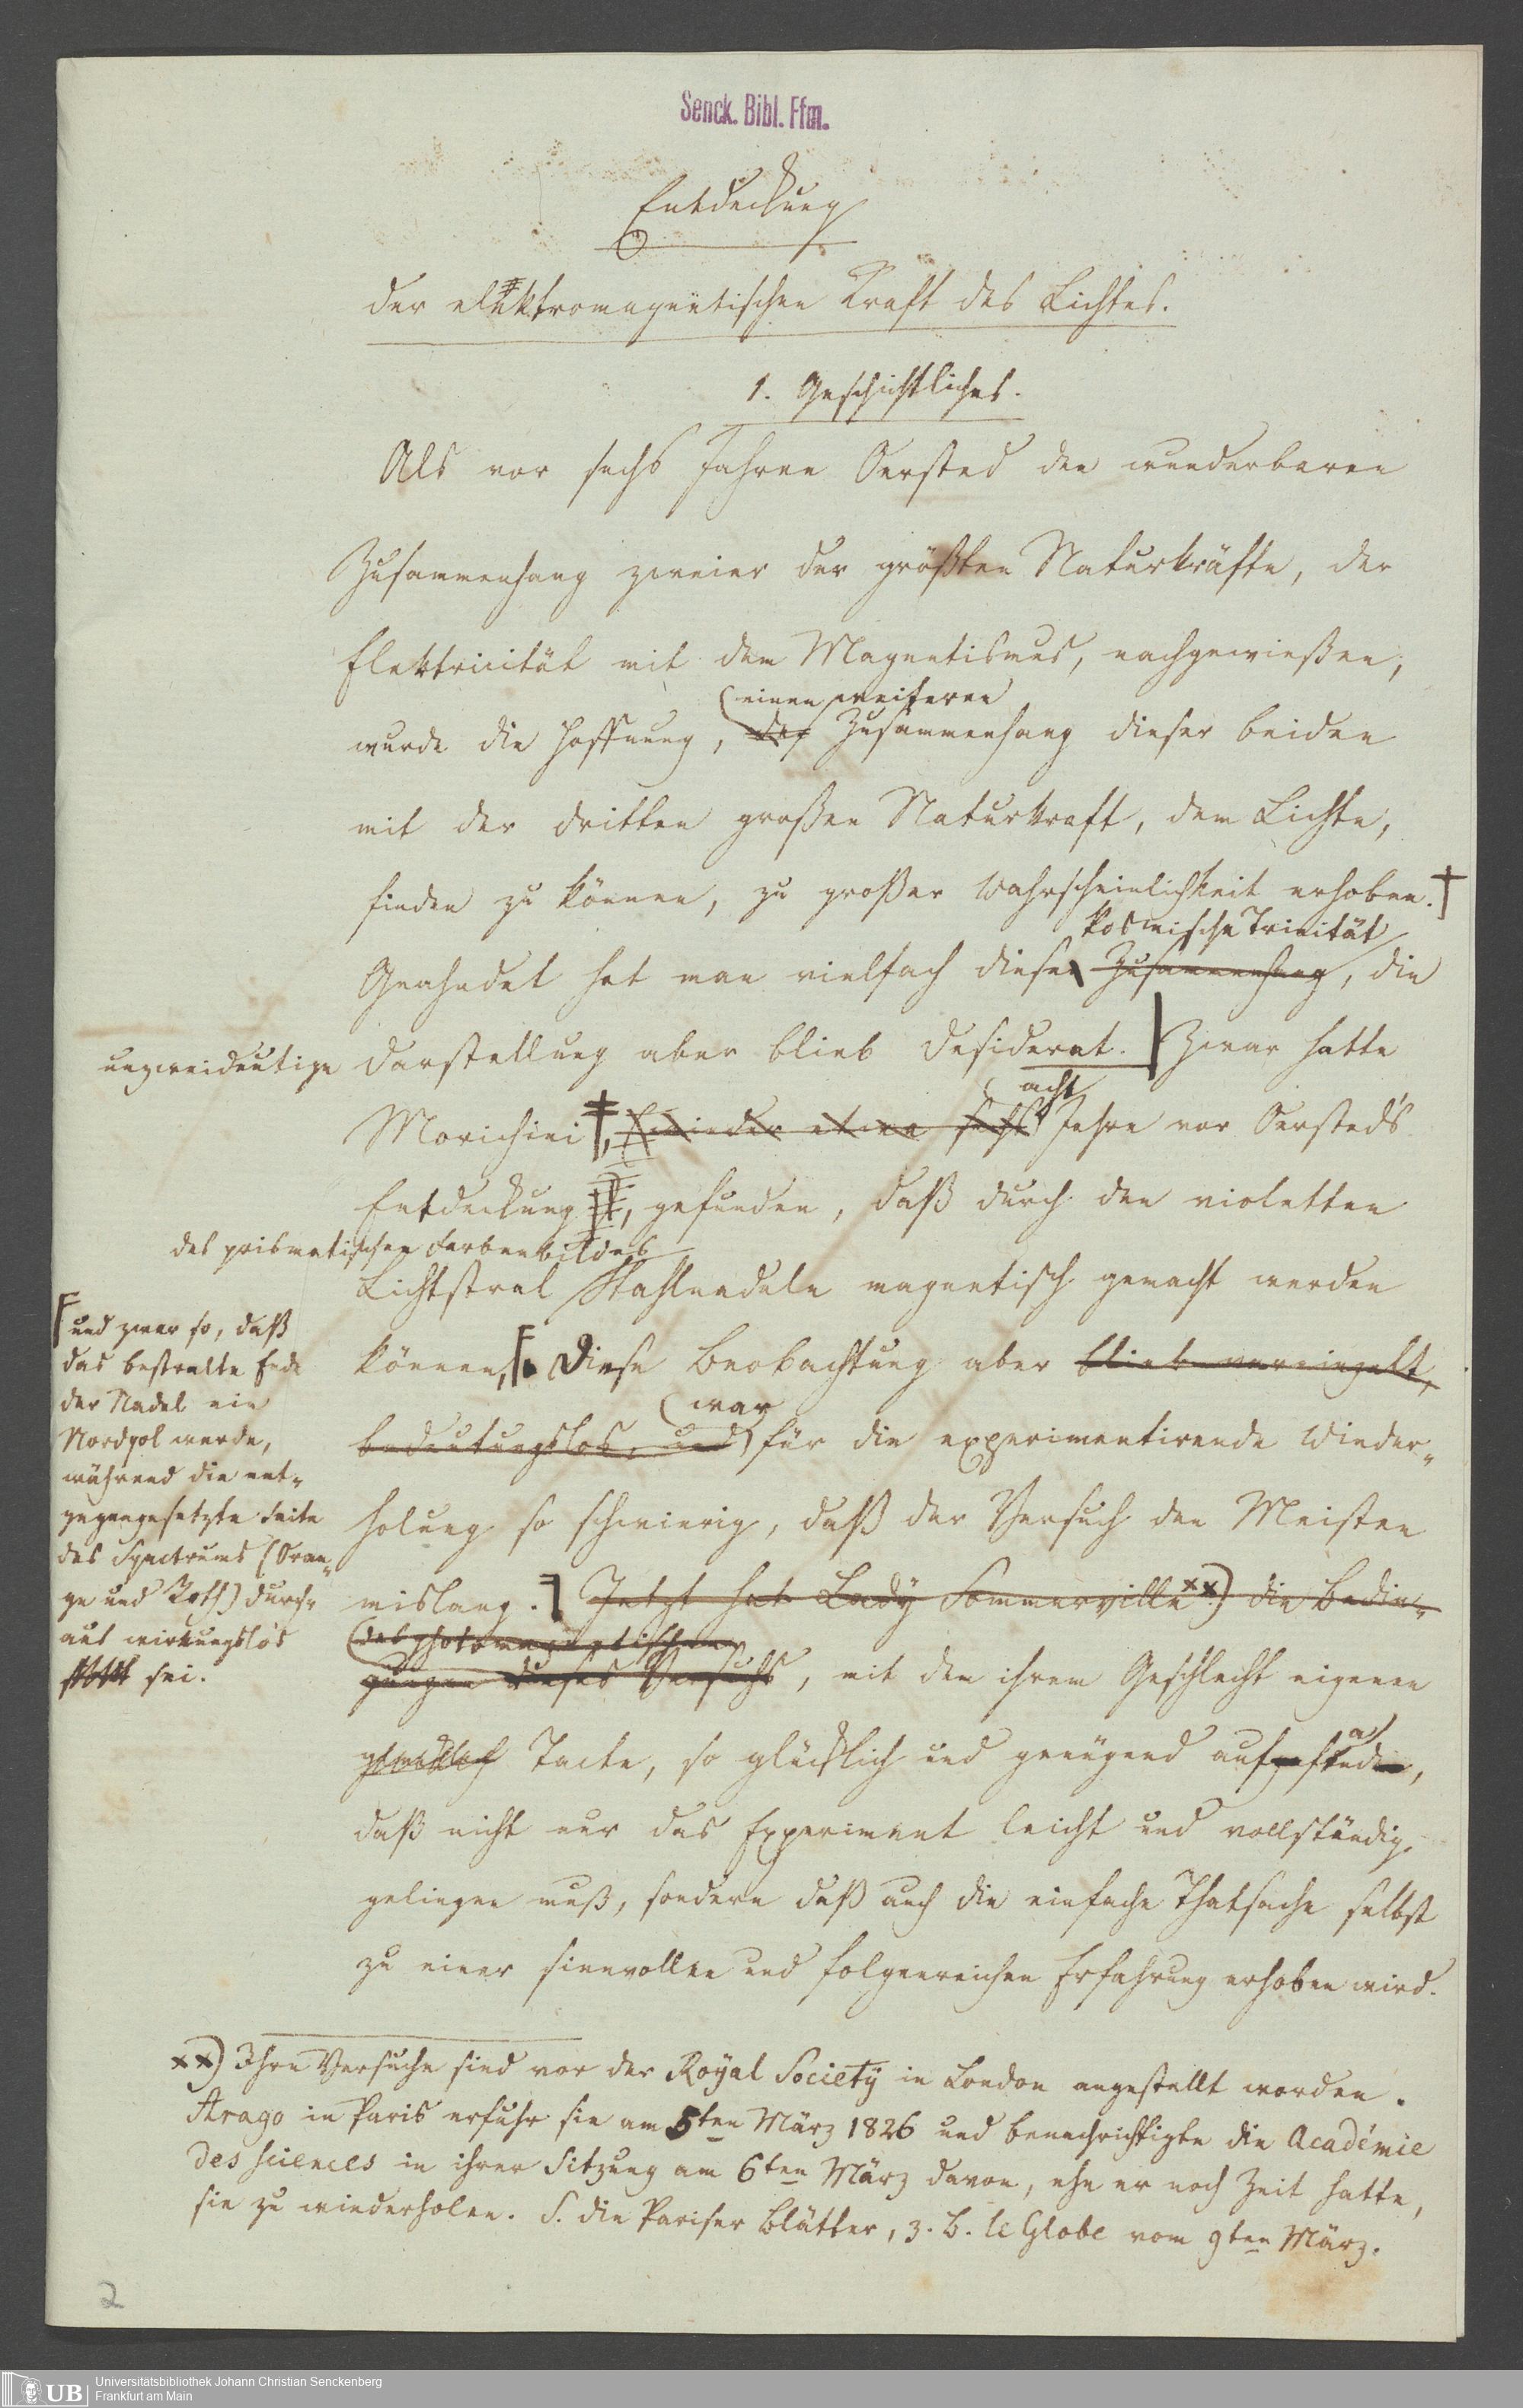 Senck. Bibl. Ffm.
Entdeckung
der elektromagnetischen Kraft des Lichtes.
1. Geschichtliches.
Als vor sechs Jahren Oersted den wunderbaren
Zusammenhang zweier der größten Naturkräfte, der
Elektricität mit dem Magnetismus, nachgewießen,
einen weiteren
wurde die Hoffnung, Zusammenhang dieser beiden
mit der dritten großen Naturkraft, dem Lichte,
finden zu können, zu großer Wahrscheinlichkeit erhoben.
kosmische Trinität
Geahndet hat man vielfach diese Zusammenhang, die
unzweideutige Darstellung aber blieb Desiderat. Zwar hatte
acht
Morichini, etwa sechs Jahre vor Oersted's
Entdeckung, gefunden, daß durch den violetten
des prismatischen Farbenbildes
Lichtstral Stahlnadeln magnetisch gemacht werden
und zwar so, daß
das bestralte Ende
der Nadel ein
Nordpol werde,
während die ent-
gegengesetzte Seite
des Spectrums (Oran-
ge und Roth) durch-
aus wirkungslos
sei.
können, Diese Beobachtung aber blieb vereinzelt,
war
bedeutungslos, und für die experimentirende Wieder-
holung so schwierig, daß der Versuch den Meisten
mislang. Jetzt hat Lady Sommerville xx) die Bedin-
des photomagnetischen
gungen dieses Versuchs, mit dem ihrem Geschlecht eigenen
Tacte, so glücklich und genügend aufgefunden,
daß nicht nur das Experiment leicht und vollständig
gelingen muß, sondern daß auch die einfache Thatsache selbst
zu einer sinnvollen und folgenreichen Erfahrung erhoben wird.
xx) Ihre Versuche sind vor der Royal Society in London angestellt worden.
Arago in Paris erfuhr sie am 5ten März 1826 und benachrichtigte die Académie
des sciences in ihrer Sitzung am 6ten März davon, ehe er noch Zeit hatte,
sie zu wiederholen. S. die Pariser Blätter, z. B. le Globe vom 9ten März.
2
UB
Universitätsbibliothek Johann Christian Senckenberg
Frankfurt am Main